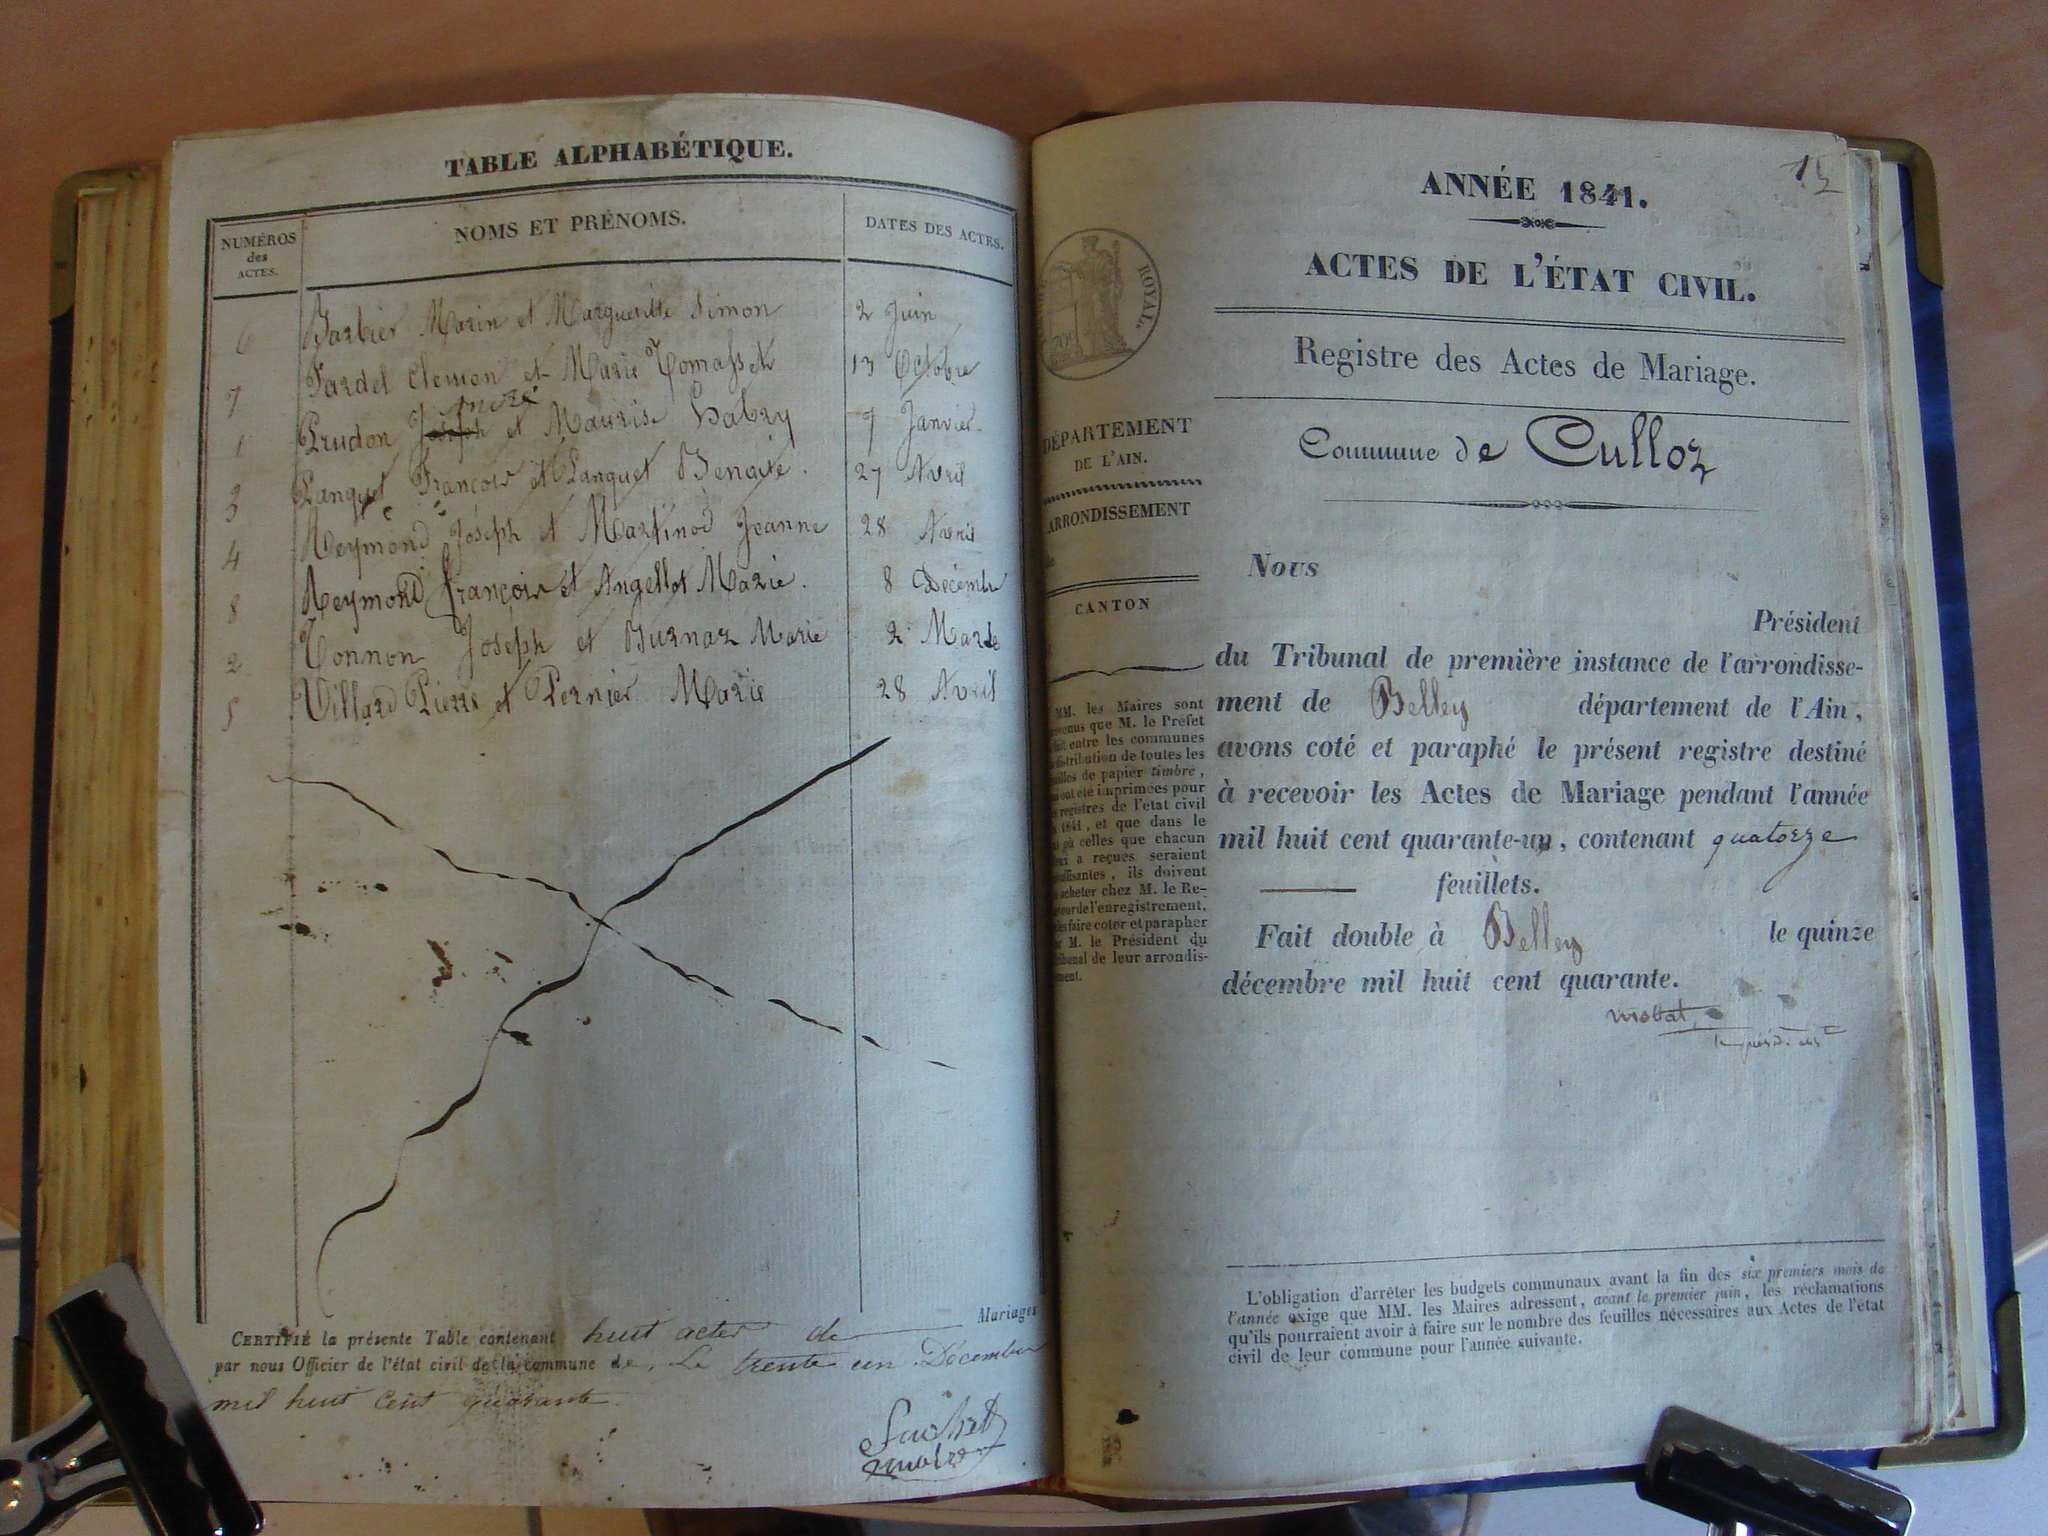 TABLE ALPHABÉTIQUE.
NUMÉROS
des
ACTES.
NOMS ET PRÉNOMS.
DATES DES ACTES.
6 Barbier Marin et Marguerite Simon 2 Juin
7 Fardel Clemen et Marie Tomasset 13 Octobre
André
1 Prudon Joseph et Maurise Dabry 7 Janvier
3 Lanquet François et Lanquet Benoite. 27 Avril
4 Reymond Joseph et Martinod Jeanne 28 Avril
8 Reymond François et Angellot Marie. 8 Décembre
2 Tonnon Joseph et Burnaz Marie 2 Mars
5 Villard Pierre et Pernier Marie 28 Avril
Mariages
CERTIFIÉ la présente Table contenant huit actes de
par nous Officier de l'état civil de la commune de, Le trente un Décembre
mil huit cent quarante.
15
ANNÉE 1841.
ACTES DE L'ÉTAT CIVIL.
Registre des Actes de Mariage.
Commune de Culloz
ROYAL.
DÉPARTEMENT
DE L'AIN.
ARRONDISSEMENT
CANTON
MM. les Maires sont
que M. le Préfet
entre les communes
distribution de toutes les
de papier timbre,
ont été imprimées pour
registres de l'état civil
1841, et que dans le
où celles que chacun
a reçues seraient
, ils doivent
acheter chez M. le Re-
de l'enregistrement,
faire coter et parapher
M. le Président du
de leur arrondis-
Nous
Président
du Tribunal de première instance de l'arrondisse-
ment de Belley département de l'Ain,
avons coté et paraphé le présent registre destiné
à recevoir les Actes de Mariage pendant l'année
mil huit cent quarante-un, contenant quatorze
feuillets.
Fait double à Belley le quinze
décembre mil huit cent quarante.
L'obligation d'arrêter les budgets communaux avant la fin des six premiers mois de
l'année exige que MM. les Maires adressent, avant le premier juin, les réclamations
qu'ils pourraient avoir à faire sur le nombre des feuilles nécessaires aux Actes de l'état
civil de leur commune pour l'année suivante.